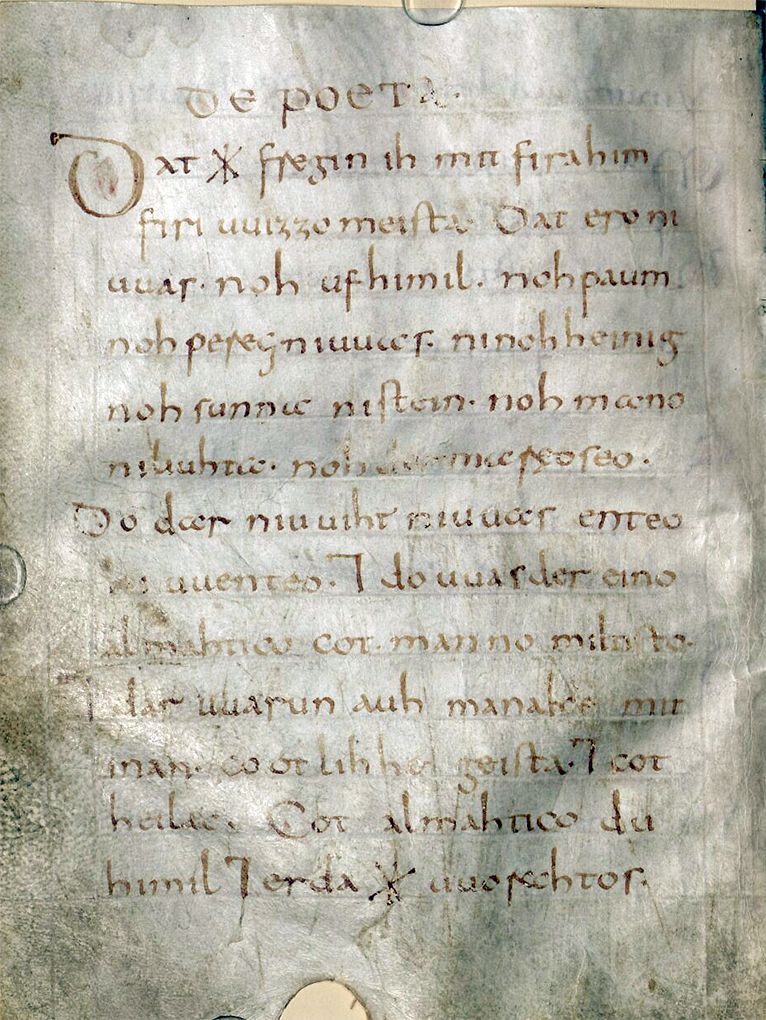 DE POETA.
Dat ᚷ fregin ih mit firahim
firi uuizzo meista. Dat ero ni
uuas. noh ufhimil. noh paum
noh pereg niuuas. ninohheinig
noh sunna nistein. noh mano
niliuhta. noh der mareoseo.
Do dar niuuiht niuuas enteo
ni uuenteo. ⁊ do uuas der eino
almahtico cot. manno miltisto.
⁊ dar uuarun auh manake mit
inan. cootlihhe geista. ⁊ cot
heilac. Cot almahtico du
himil ⁊ erda ᚷ uuorahtos.